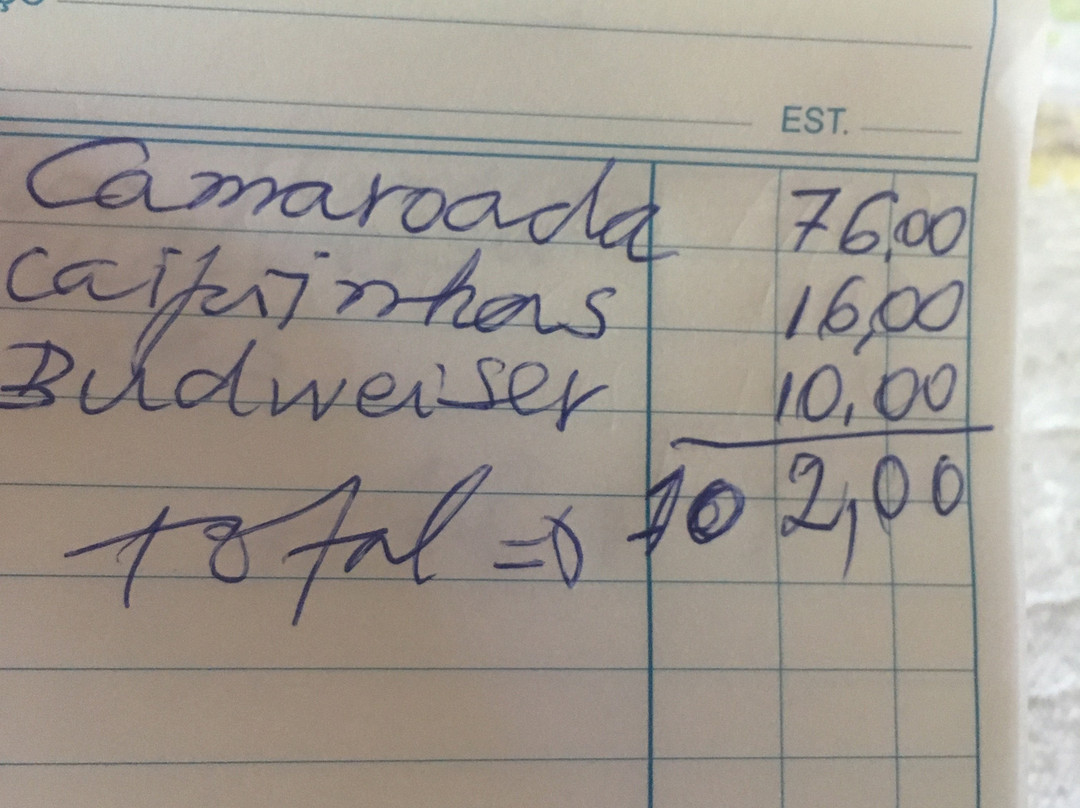 EST.
Camaroada 76,00
caipirinhas 16,00
Budweiser 10,00
Total => 102,00